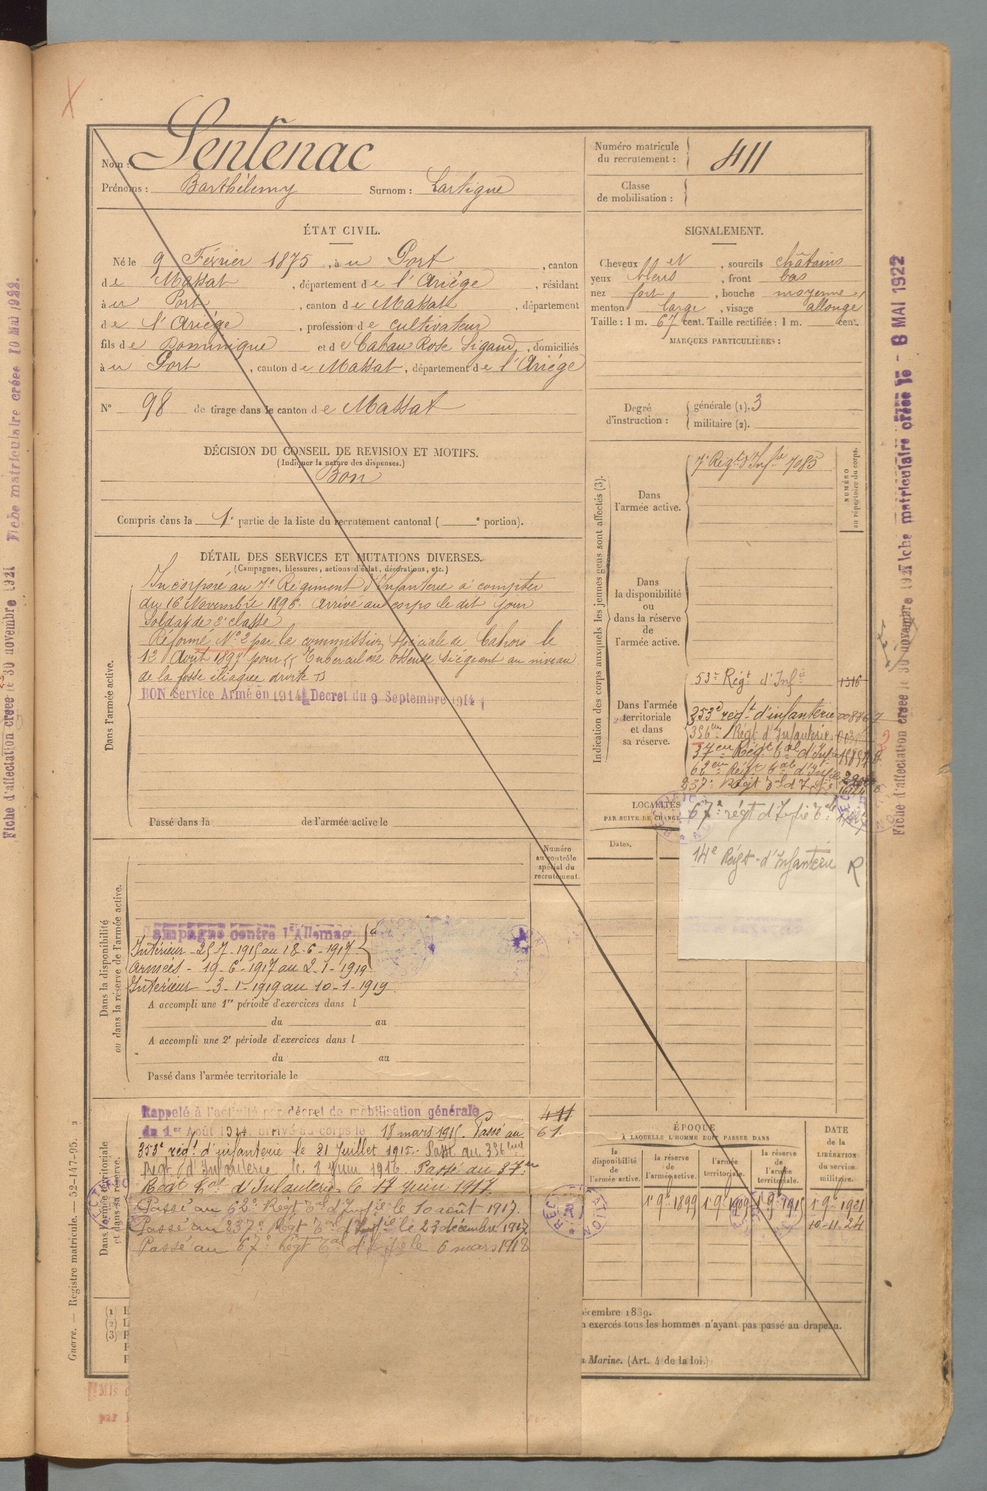 Nom : Sentenac
Prénoms : Barthélemy Surnom : Lartigue
Numéro matricule
du recrutement : 411
Classe
de mobilisation :
ÉTAT CIVIL.
Né le 9 Février 1875, à u Port, canton
de Massat, département de l'Ariège, résidant
à u Port, canton de Massat, département
de l'Ariège, profession de cultivateur
fils de Dominique et de Cabau Rose Sigaud, domiciliés
à u Port, canton de Massat, département de l'Ariège
N° 98 de tirage dans le canton de Massat
DÉCISION DU CONSEIL DE REVISION ET MOTIFS.
(Indiquer la nature des dispenses.)
Bon
Compris dans la 1e partie de la liste du recrutement cantonal ( e portion).
SIGNALEMENT.
Cheveux , sourcils châtains
yeux bleus, front bas
nez fort, bouche moyenne
menton large, visage allongé
Taille : 1 m. 67 cent. Taille rectifiée : 1 m. cent.
MARQUES PARTICULIÈRES :
Degré
d'instruction :
générale (1). 3
militaire (2).
DÉTAIL DES SERVICES ET MUTATIONS DIVERSES.
(Campagnes, blessures, actions d'éclat, décorations, etc.)
Dans l'armée active.
Incorporé au 7e Régiment d'Infanterie à compter
du 16 Novembre 1896. arrivé au corps le dit jour
Soldat de 2e classe
Réformé N° 2 par la commission spéciale de Cahors le
12 Août 1897 pour
de la fosse iliaque droite
BON Service Armé en 1914 Décret du 9 Septembre 1914
Passé dans la de l'armée active le
Indication des corps auxquels les jeunes gens sont affectés (3).
NUMÉRO
au répertoire du corps.
Dans
l'armée active.
7e Regt d'Infie 7085
Dans
la disponibilité
ou
dans la réserve
de
l'armée active.
Dans l'armée
territoriale
et dans
sa réserve.
53e Régt d'Infie 1316
353e régt d'infanterie
336eme Régt d'Infanterie
37eme Régt tal d'Inf
62eme Régt tal d'Inf
237e Régt tal d'Inf
LOCALITÉS
PAR SUITE DE CHANGE
67e régt d'Infie tale
14e Régt d'Infanterie R
Dates.
Numéro
au contrôle
spécial du
recrutement.
Dans la disponibilité
ou dans la réserve de l'armée active.
Campagne contre l'Allemagne
Intérieur - 25-7-1915 au 18-6-1917
Armées - 19-6-1917 au 2-1-1919
Intérieur - 3-1-1919 au 10-1-1919
A accompli une 1re période d'exercices dans l
du au
A accompli une 2e période d'exercices dans l
du au
Passé dans l'armée territoriale le
Dans l'armée territoriale
et dans sa réserve.
Rappelé à l'activité par décret de mobilisation générale
du 1er Août 1914. arrivé au corps le 18 mars 1915. Passé au
353e régt d'infanterie le 21 Juillet 1915. Passé au 336eme
Régt d'Infanterie le 1 Juin 1916. Passé au 37eme
Régt tal d'Infanterie le 17 juin 1917.
Passé au 62e Régt tal d'Infie le 10 août 1917.
Passé au 237e Régt tal d'Infie le 23 décembre 1917.
Passé au 67e Régt tal d'Infie le 6 mars 1918
411
61.
ÉPOQUE
À LAQUELLE L'HOMME DOIT PASSER DANS
la
disponibilité
de
l'armée active.
la réserve
de
l'armée active.
l'armée
territoriale.
la réserve
de
l'armée
territoriale.
DATE
de la
LIBÉRATION
du service
militaire.
1er 9bre 1899
1er 9bre 1909
1er 9bre 1915
1er 9bre 1921
10-11-24
écembre 1889.
n exercés tous les hommes n'ayant pas passé au drapeau.
a Marine. (Art. 4 de la loi.)
(1
(2)
(3)
Guerre. — Registre matricule. — 52-147-95.
Fiche d'affectation créée le 30 novembre 1921
Fiche matriculaire créée 10 Mai 1922.
Fiche matriculaire créée le - 8 MAI 1922
Fiche d'affectation créée le 30 novembre 1921